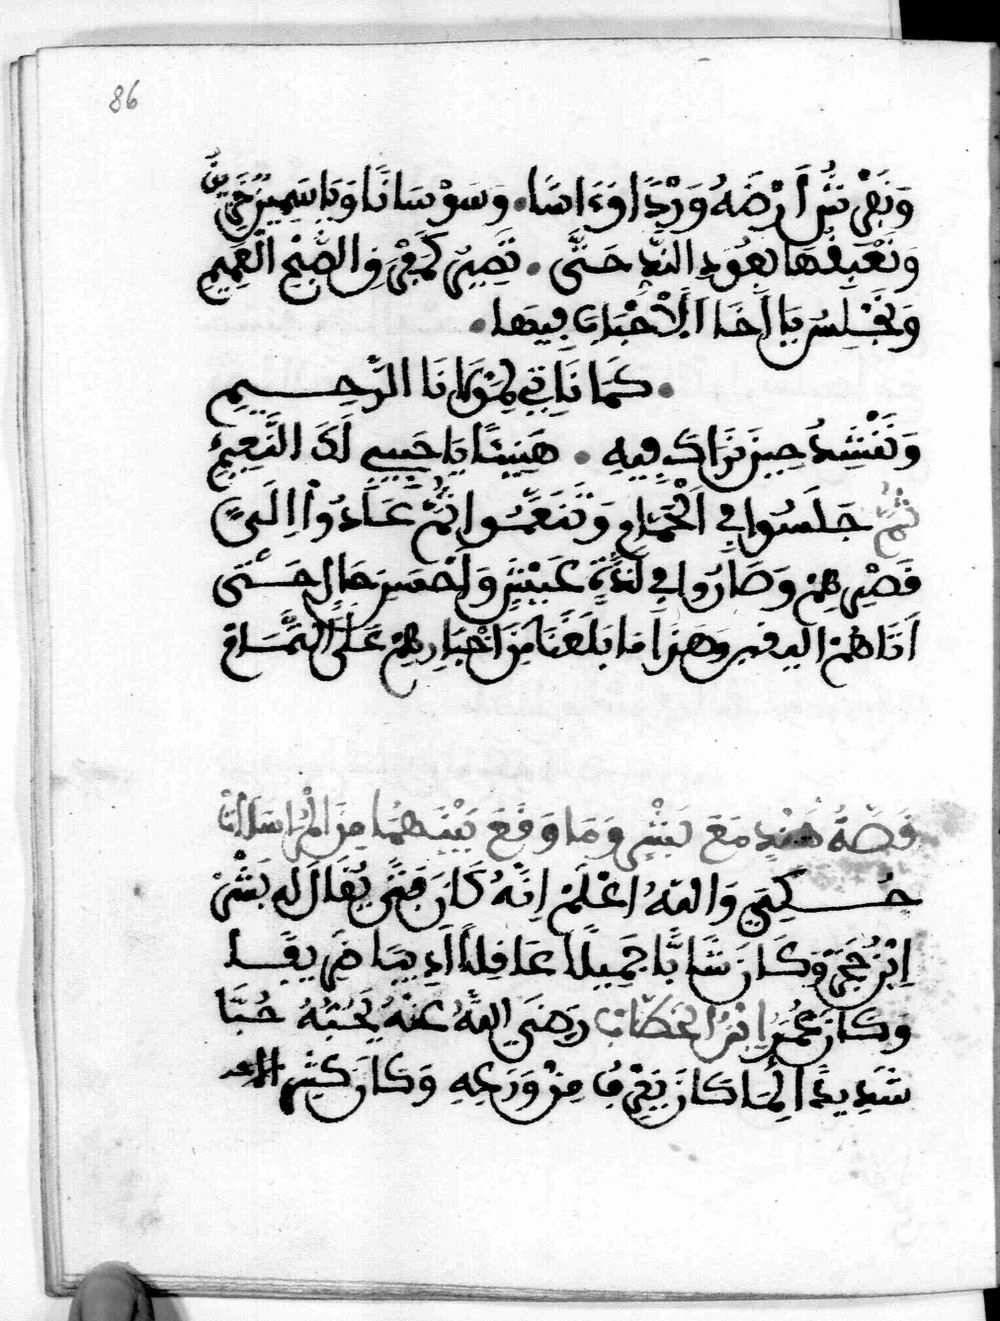 86
وَنَفْرِشُ أَرْضَهُ وَرْدًا وَءَاسًا. وَسَوْسَانًا وَيَاسَمِينَ
وَنَعْبِقُهَا بِعُودِ النَّدِ حَتَّى. تَصِيرُ كَمَفْرِ الصُّبْحِ الْعَمِيمِ
وَنَجْلِسُ يَا أَخَا الْأَحْبَابِ فِيهَا.
. كَمَا نَاتِي لِمَوْلَانَا الرَّحِيمِ
وَنُنْشِدُ حِينَ نَرَاكَ فِيهِ. هَنِيئًا يَا حَبِيبِي لَكَ النَّعِيمُ
ثُمَّ جَلَسُوا فِي الْحَمَّامِ وَتَنَعَّمُوا ثُمَّ عَادُوا إِلَى
قَصْرِهِمْ وَصَارُوا فِي لَذَّةِ عَيْشٍ وَأَحْسَنِ حَالٍ حَتَّى
أَتَاهُمُ الْيَقِينُ وَهَذَا مَا بَلَغَنَا مِنْ أَخْبَارِهِمْ عَلَى التَّمَامِ
قِصَّةُ هِنْدٍ مَعَ بِشْرٍ وَمَا وَقَعَ بَيْنَهُمَا مِنَ الْمُرَاسَلَاتِ
حُكِيَ وَاللَّهُ أَعْلَمُ أَنَّهُ كَانَ فَتًى يُقَالُ لَهُ بِشْرُ
ابْنُ وَكَانَ شَابًّا جَمِيلًا عَاقِلًا أَدِيبًا ظَرِيفًا
وَكَانَ عُمَرُ ابْنُ الْخَطَّابِ رَضِيَ اللَّهُ عَنْهُ يُحِبُّهُ حُبًّا
شَدِيدًا لِمَا كَانَ يَعْرِفُ مِنْ وَرَعِهِ وَكَانَ كَثِيرَ